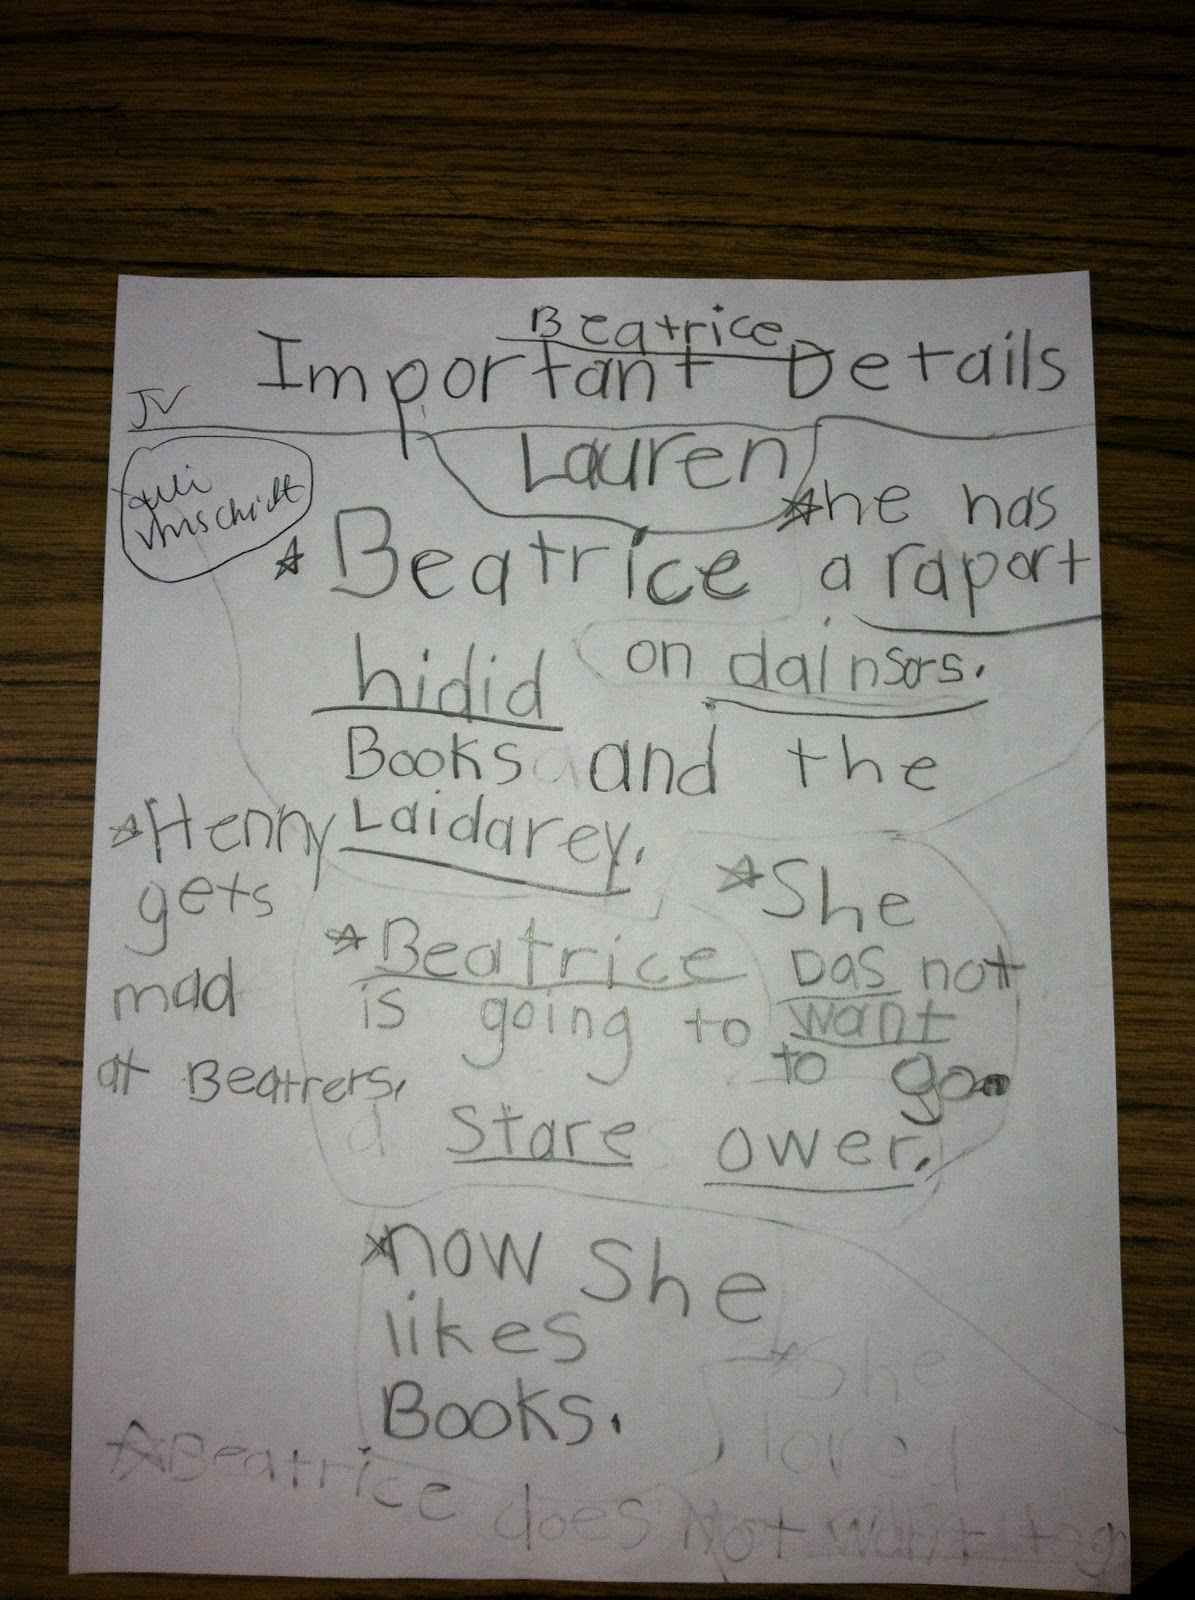 Beatrice
Important Details
JV
Lauren
*he has
a raport
on dainsors.
*Beatrice
hidid
Books and the
Laidarey.
*Henny
gets
mad
at Beatrers.
*Beatrice
is going to
a Stare ower.
*She
Das not
want
to go
*now She
likes
Books.
*She
loved
*Beatrice does Not want to go